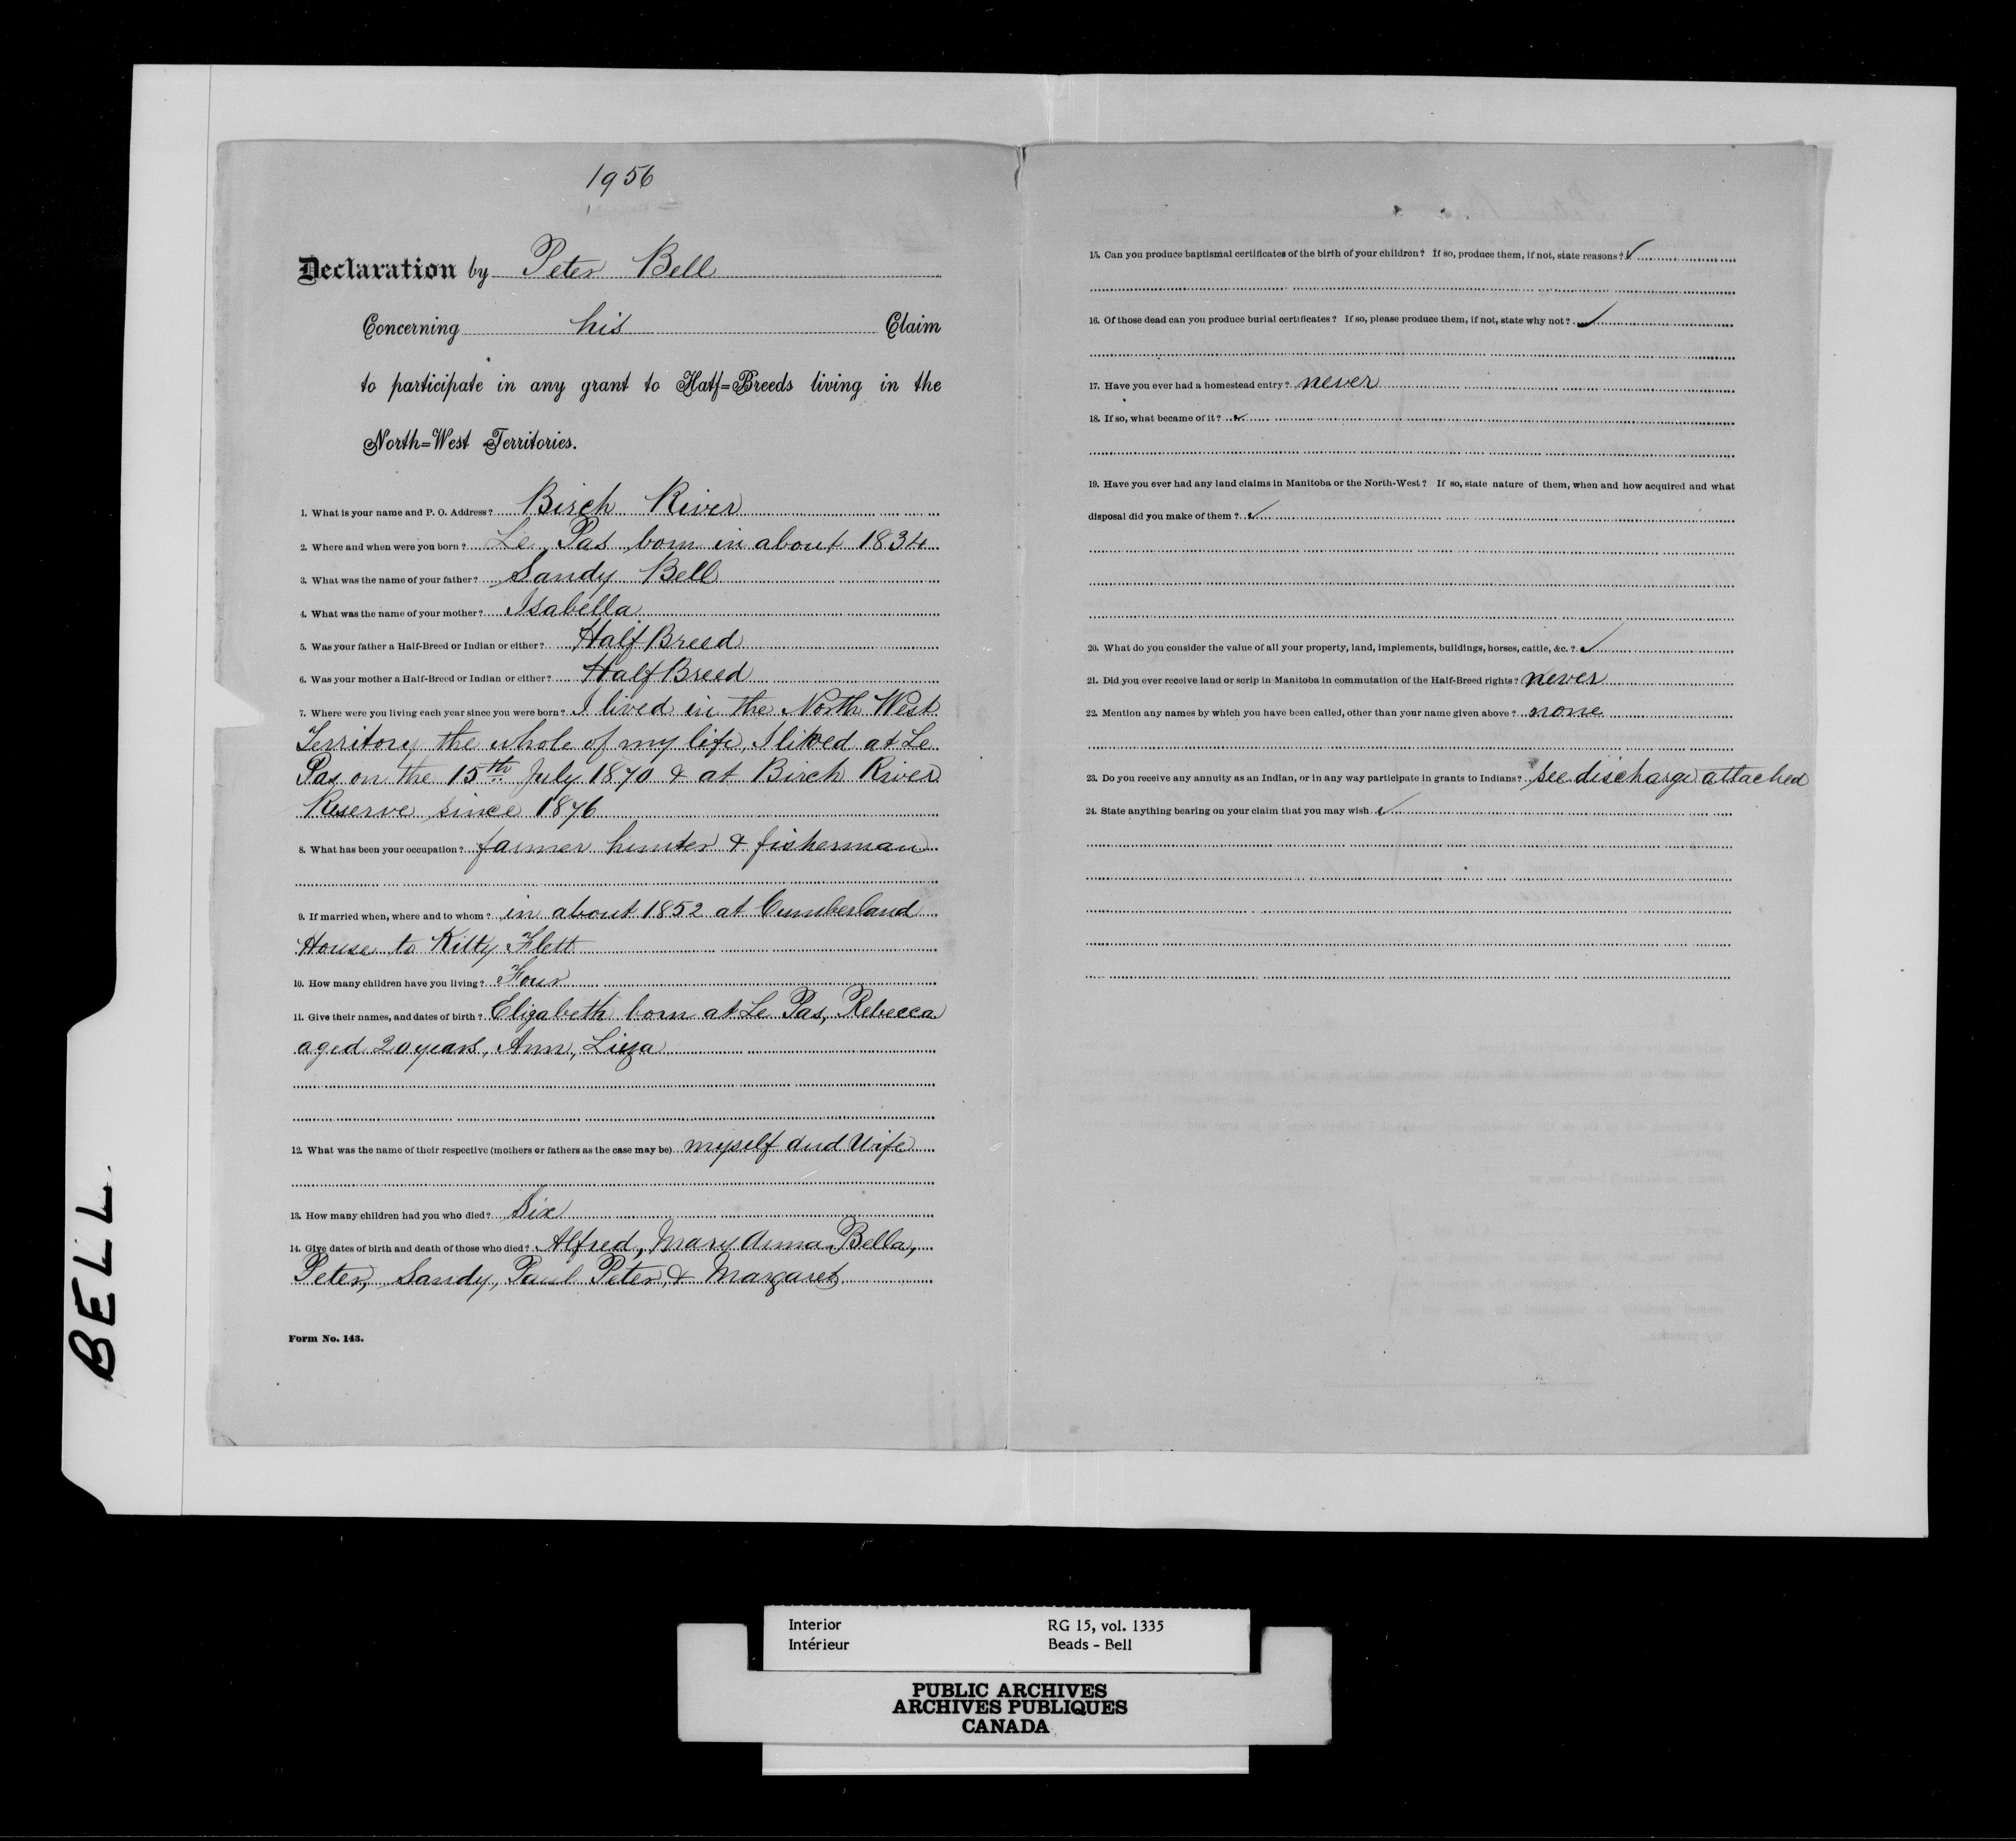 1956
Declaration by Peter Bell
Concerning his Claim
to participate in any grant to Half=Breeds living in the
North=West Territories.
1. What is your name and P. O. Address? Birch River
2. Where and when were you born? Le Pas born in about 1834
3. What was the name of your father? Sandy Bell
4. What was the name of your mother? Isabella
5. Was your father a Half-Breed or Indian or either? Half Breed
6. Was your mother a Half-Breed or Indian or either? Half Breed
7. Where were you living each year since you were born? I lived in the North West
Territory the whole of my life, I lived at Le
Pas on the 15th July 1870 & at Birch River
Reserve since 1876
8. What has been your occupation? farmer hunter & fisherman
9. If married when, where and to whom? in about 1852 at Cumberland
House to Kitty Flett
10. How many children have you living? Four
11. Give their names, and dates of birth? Elizabeth born at Le Pas, Rebecca
aged 20 years, Ann, Liza
12. What was the name of their respective (mothers or fathers as the case may be) myself and Wife
13. How many children had you who died? Six
14. Give dates of birth and death of those who died? Alfred, Mary Anna, Bella,
Peter, Sandy, Paul Peter, & Margaret
Form No. 143.
15. Can you produce baptismal certificates of the birth of your children? If so, produce them, if not, state reasons? ✓
16. Of those dead can you produce burial certificates? If so, please produce them, if not, state why not? ✓
17. Have you ever had a homestead entry? never
18. If so, what became of it? ✓
19. Have you ever had any land claims in Manitoba or the North-West? If so, state nature of them, when and how acquired and what
disposal did you make of them? ✓
20. What do you consider the value of all your property, land, implements, buildings, horses, cattle, &c.? ✓
21. Did you ever receive land or scrip in Manitoba in commutation of the Half-Breed rights? never
22. Mention any names by which you have been called, other than your name given above? none
23. Do you receive any annuity as an Indian, or in any way participate in grants to Indians? see discharge attached
24. State anything bearing on your claim that you may wish ✓
BELL.
Interior RG 15, vol. 1335
Intérieur Beads - Bell
PUBLIC ARCHIVES
ARCHIVES PUBLIQUES
CANADA